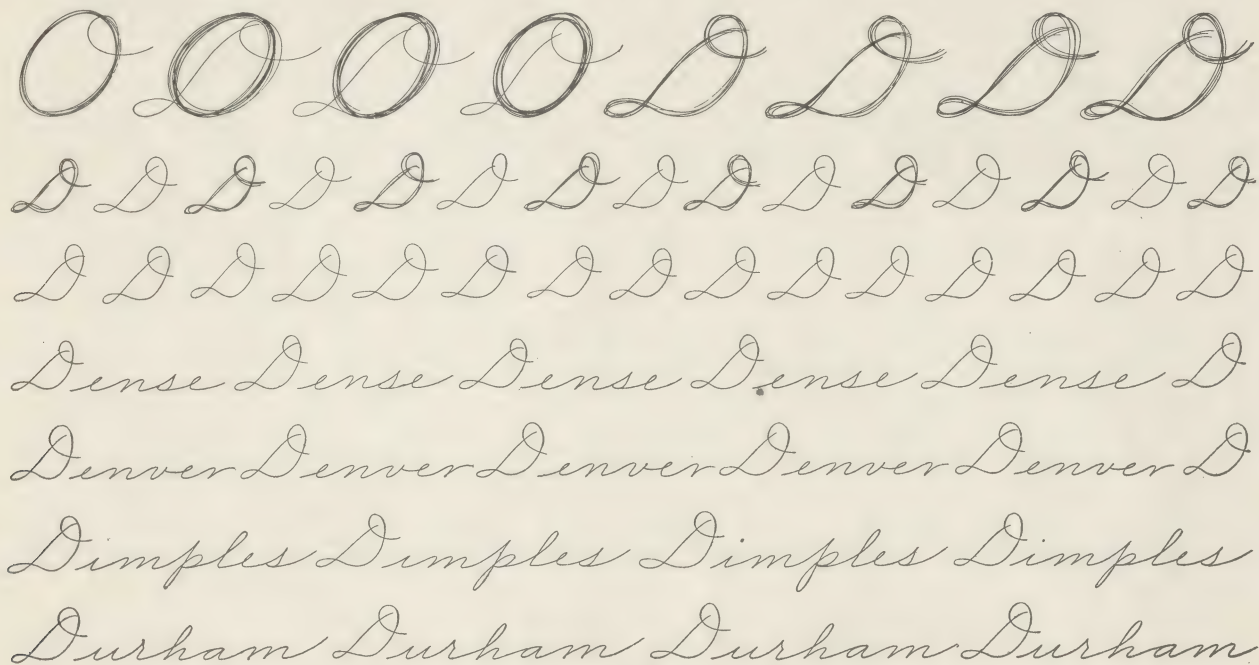 O O O O D D D D
D D D D D D D D D D D D D D D
D D D D D D D D D D D D D D D
Dense Dense Dense Dense Dense D
Denver Denver Denver Denver Denver D
Dimples Dimples Dimples Dimples
Durham Durham Durham Durham